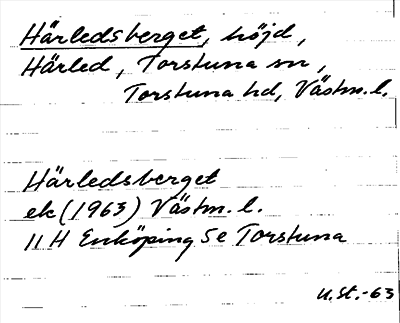 Härledsberget, höjd,
Härled, Torstuna sn,
Torstuna hd, Västm. l.
Härledsberget
ek (1963) Västm. l.
11 H Enköping 5e Torstuna
u.st.-63